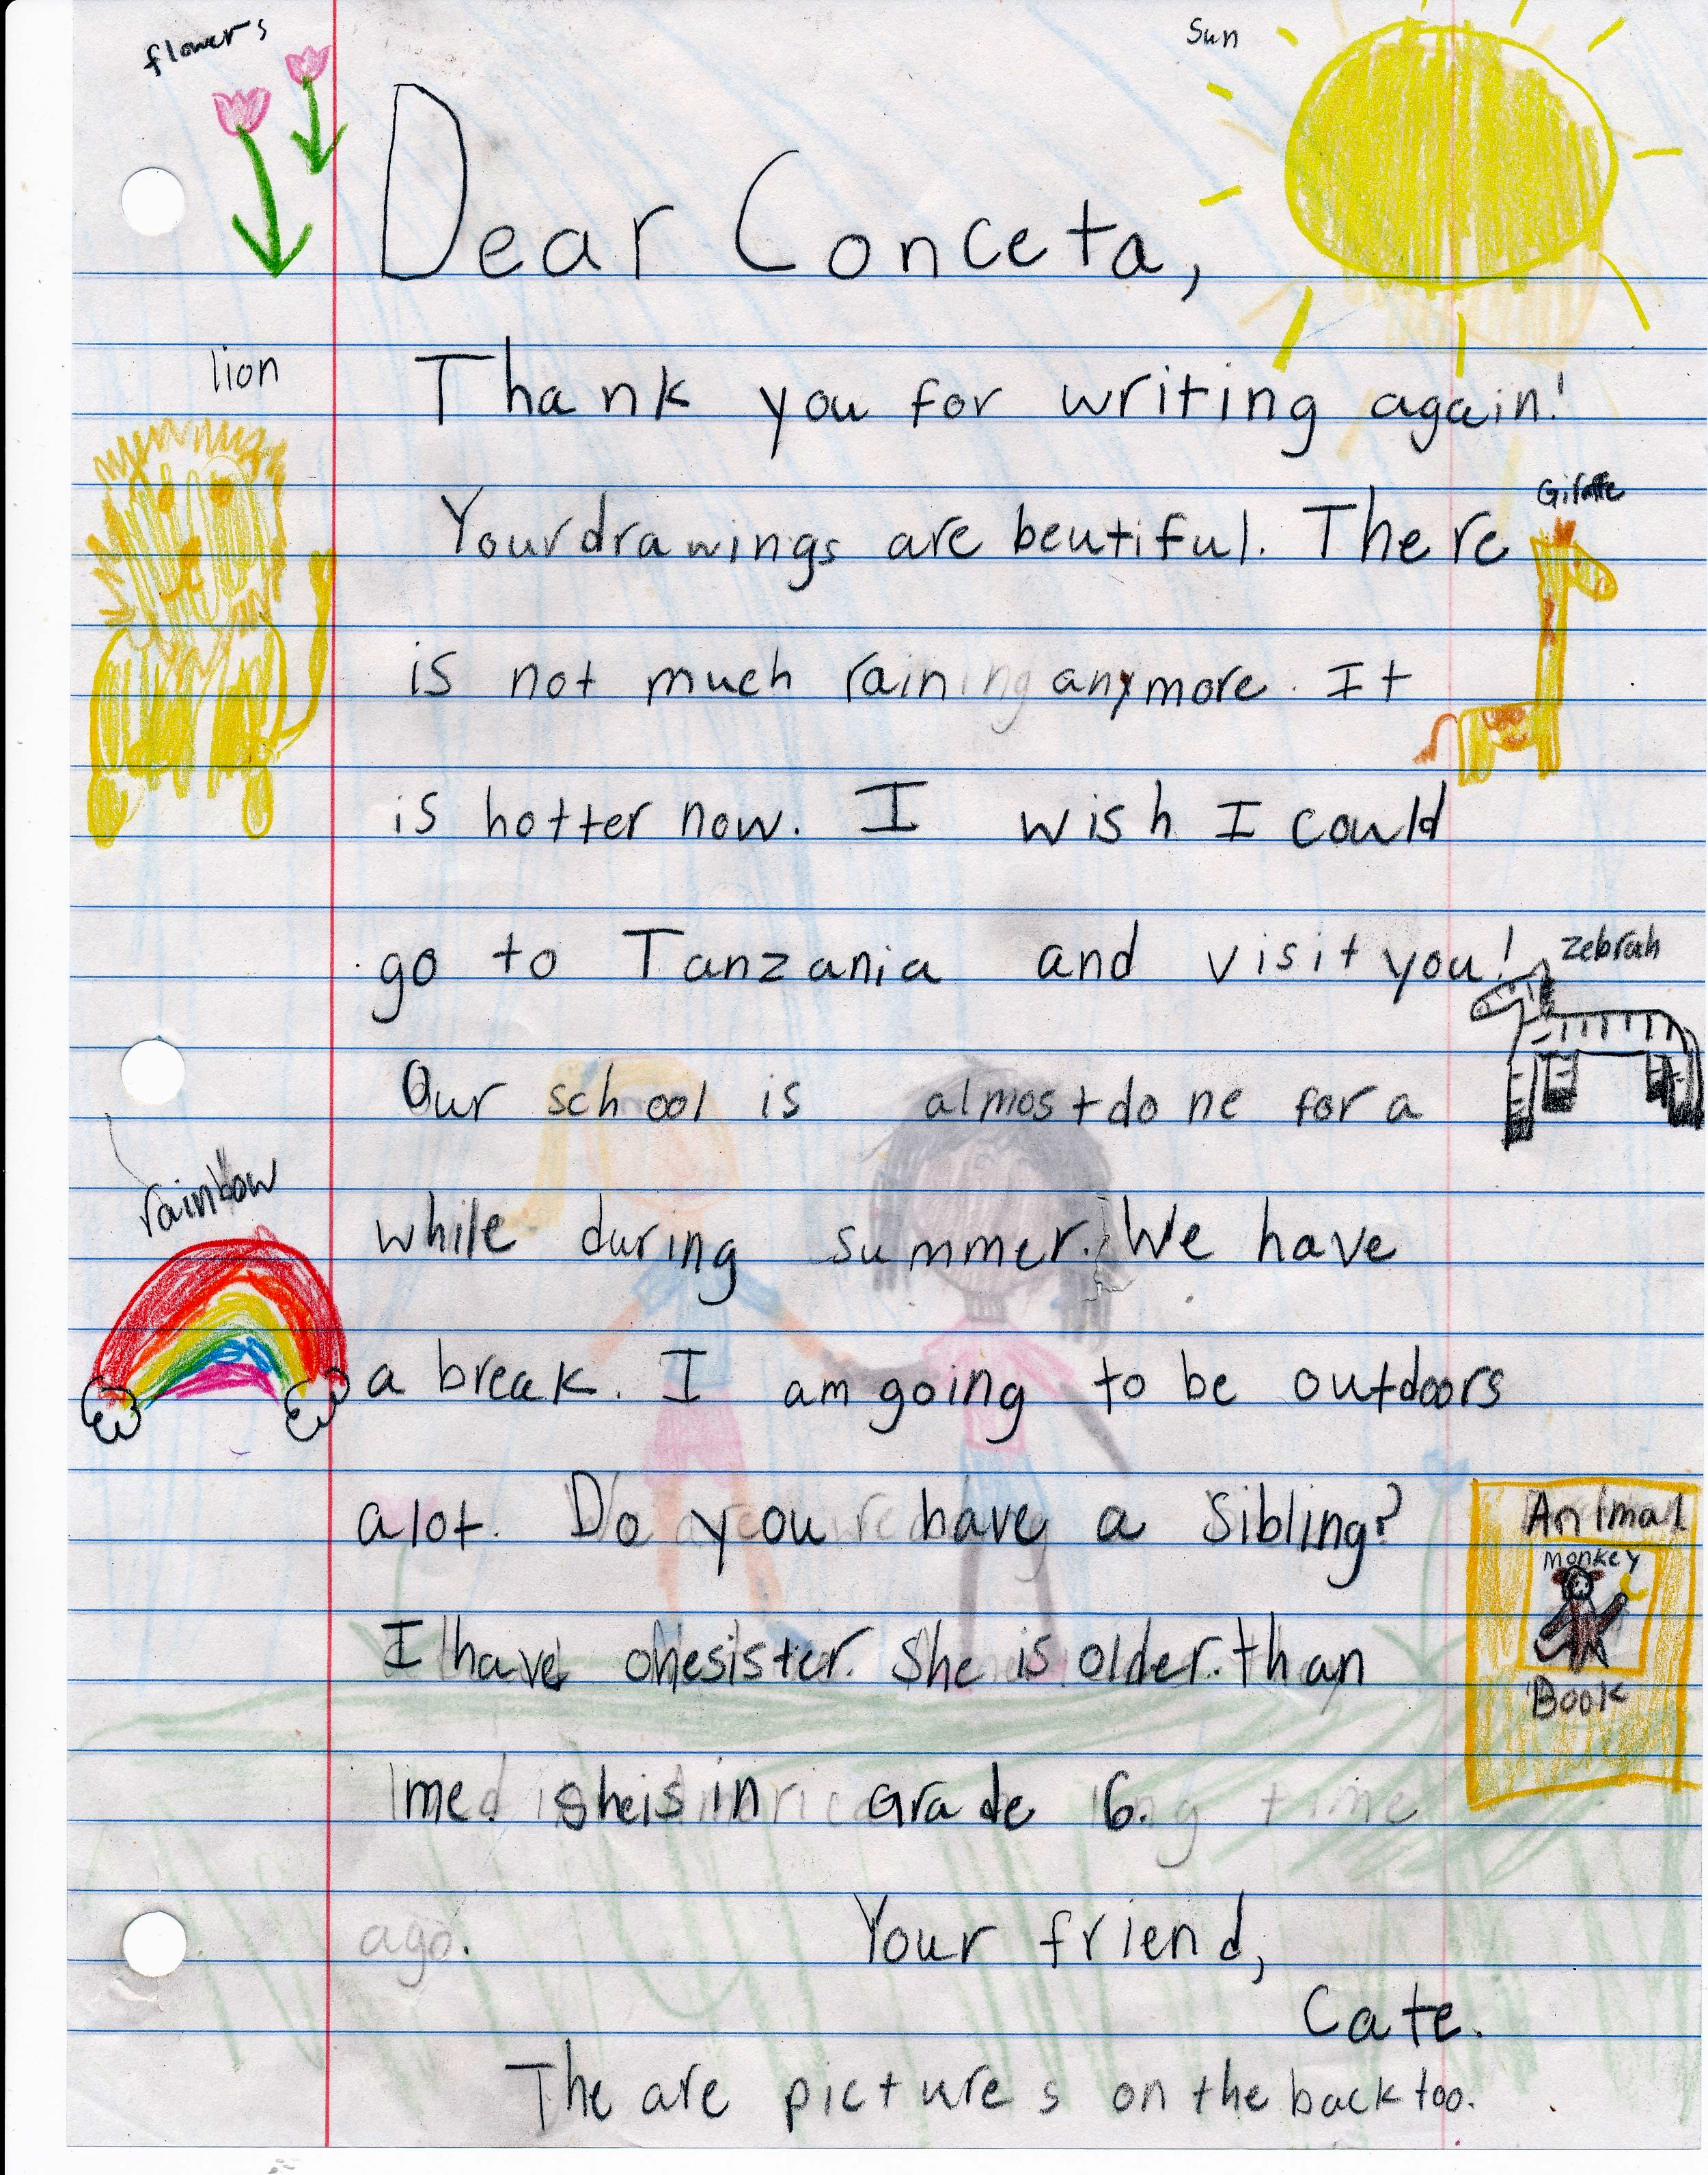 flowers
Sun
Dear Conceta,
lion
Thank you for writing again!
Giraffe
Your drawings are beutiful. There
is not much raining anymore. It
is hotter now. I wish I could
go to Tanzania and visit you!
zebrah
Our school is almost done for a
rainbow
while during summer. We have
a break. I am going to be outdoors
alot. Do you have a sibling?
Animal
monkey
Book
I have one sister. She is older. than
me. she is in Grade 6.
ago.
Your friend,
Cate.
The are pictures on the back too.